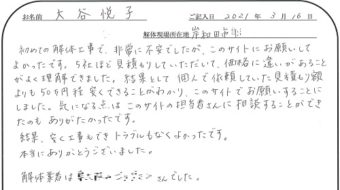 お名前 大谷悦子 ご記入日 2021年3月16日
解体現場所在地 岸和田市
初めての解体工事で、非常に不安でしたが、このサイトにお願いして
よかったです。5社ほど見積もりしていただいて、価格に違いがあること
がよく理解できました。結果として個人で依頼していた見積もり額
よりも50万円程安くできることがわかり、このサイトでお願いすることに
しました。気になる点はこのサイトの担当者さんに相談することができ
たのもありがたかったです。
結果、安く工事もでき トラブルもなくよかったです。
本当にありがとうございました。
解体業者は さんでした。